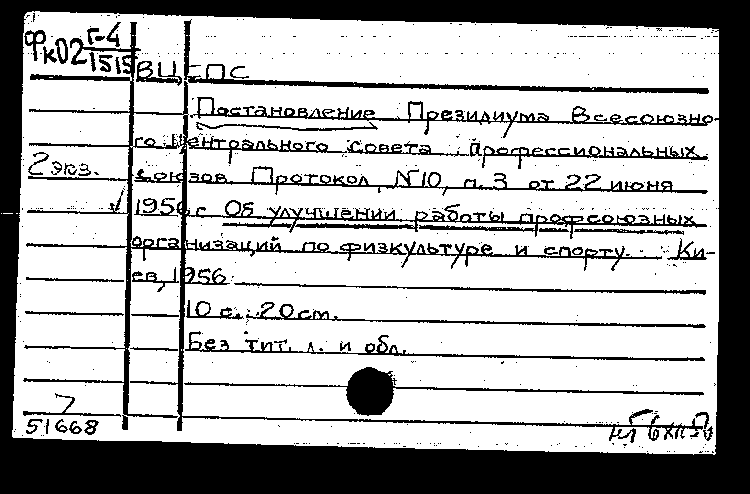 Фк02 г-4/1515
ВЦСПС
Постановление Президиума Всесоюзно-
го Центрального совета профессиональных
2 экз. союзов. Протокол, №10, п. 3 от 22 июня
1956 г. Об улучшении работы профсоюзных
организаций по физкультуре и спорту. Ки-
ев, 1956.
10 с.; 20 см.
Без тит. л. и обл.
7
51668